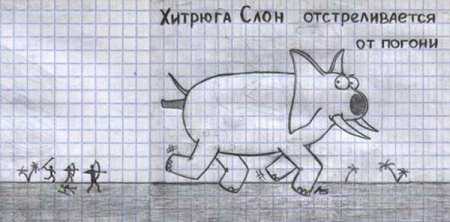 Хитрюга Слон отстреливается
от погони